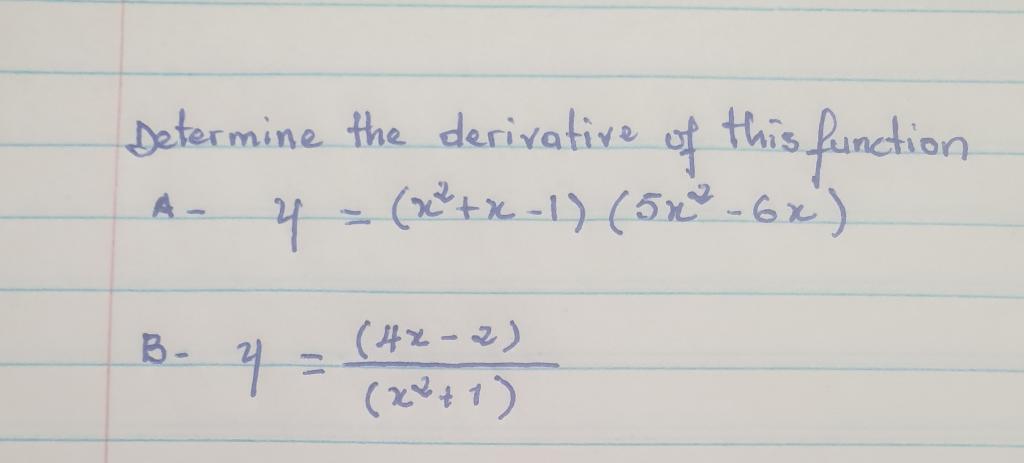 Determine the derivative of this function
A - y = (x²+x-1) (5x² - 6x)
B - y = (4x - 2)
(x² + 1)